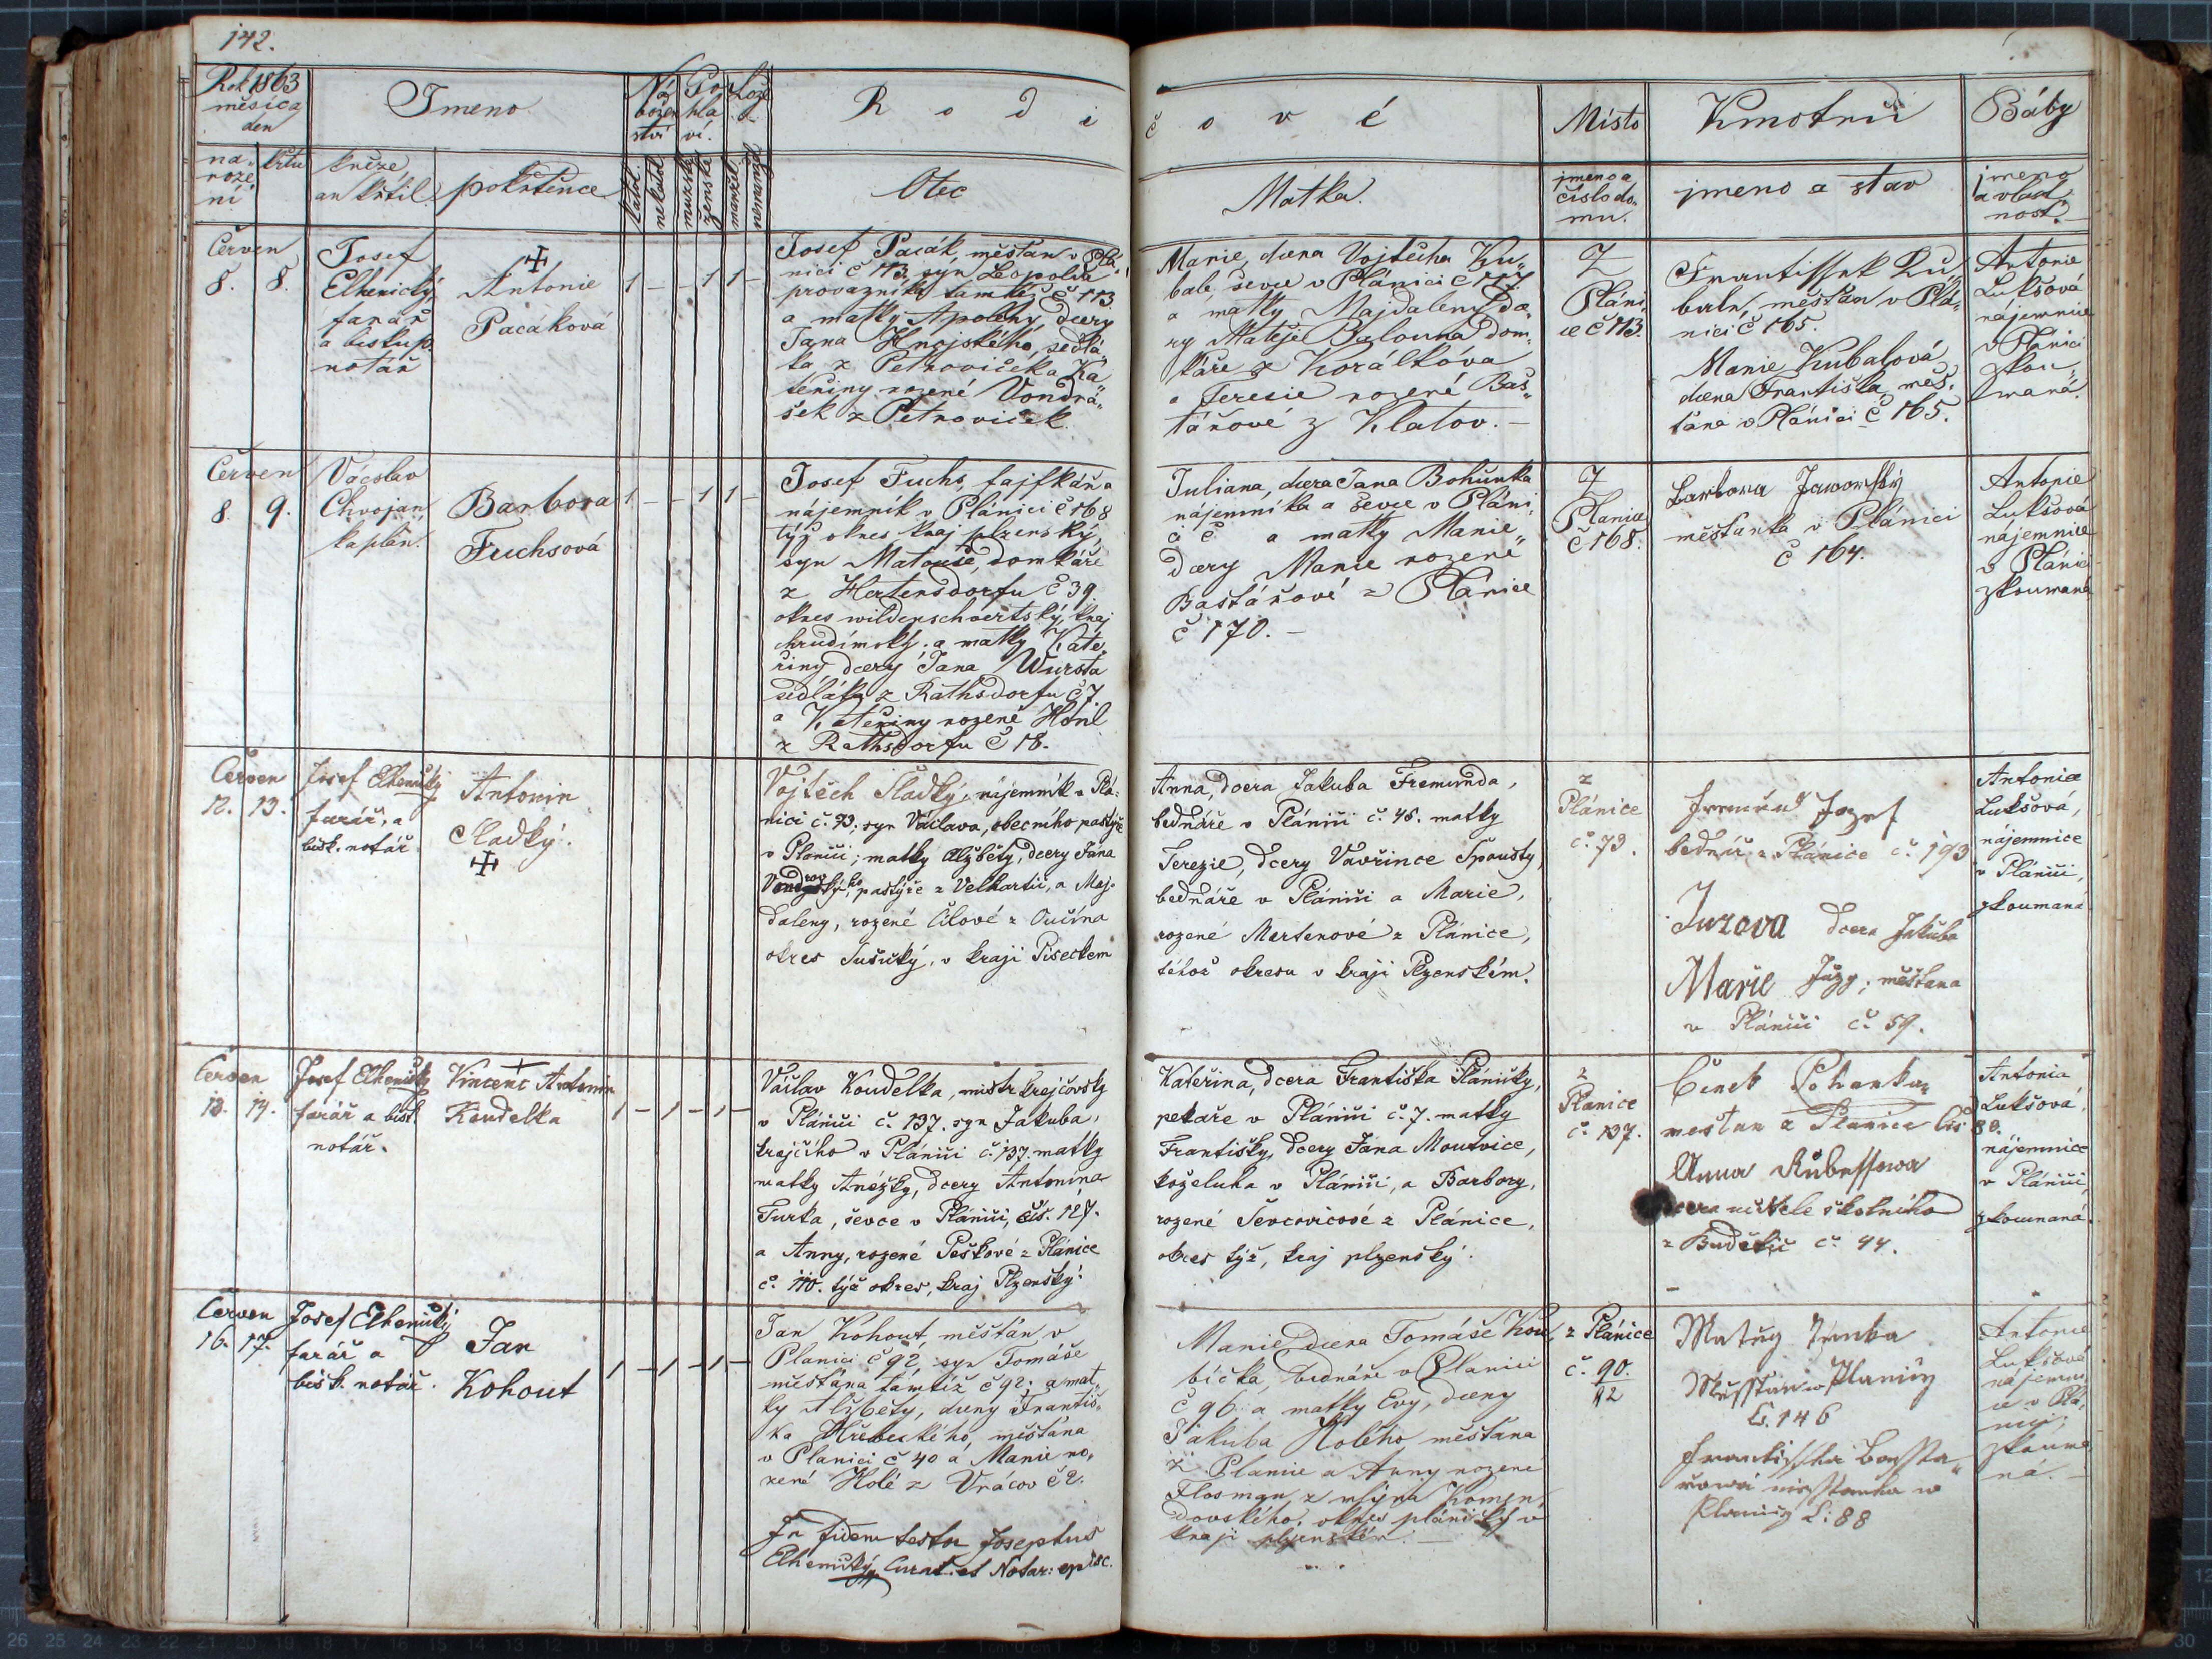 142.
Rok 1863
měsíce
den
na-
roze
ní
křtu
Jmeno
kněze,
an křtil
pokřtěnce
Ná
božen
ství
Po
hla
ví.
Lože
katol.
nekatol.
mužské
ženské
manžel.
nemanžel.
Rodi
Otec
čové
Matka.
Místo
jmeno a
číslo do-
mu.
Kmotrů
jmeno a stav
Báby
jmeno
a vlast-
nost.
Červen
8. 8.
Josef
Elhenický
farář
a biskup.
notář
Antonie
Pacáková
1 - - 1 1 -
Josef Pacák, měšťan v Plá-
nici č 113, syn Leopolda
provazníka tamtéž č 113
a matky Apoleny, dcery
Jana Hnojského, sedlá-
ka z Petroviček a Ka-
teřiny rozené Vondrá-
šek z Petroviček.
Marie, dcera Vojtěcha Ku-
bale, ševce v Plánici č 117
a matky Majdaleny, dce-
ry Matěje Balouna, dom-
káře z Korálkova
a Terezie rozené Baš-
tářové z Klatov. -
Z
Pláni-
ce č 113.
Frantissek Ku-
bale, měšťan v Plá-
nici č 165.
Marie Kubalová
dcera Františka, měš-
ťana v Plánici č 165.
Antonie
Lukšová
nájemnice
v Plánici
zkou-
maná.
Červen
8. 9.
Václav
Chvojan
kaplan.
Barbora
Fuchsová
1 - - 1 1 -
Josef Fuchs, fajfkář a
nájemník v Plánici č 168
týž okres kraj plzenský,
syn Matouše, domkáře
z Hertersdorfu č 39.
okres wildenschwertský, kraj
chrudimský. a matky Kate-
řiny dcery Jana Wursta
sedláka z Rathsdorfu č 7.
a Kateřiny rozené Honl
z Rathsdorfu č 18.
Juliana, dcera Jana Bohunka
nájemníka a ševce v Pláni-
ci č a matky Marie
dcery Marie rozené
Baštářové z Plánice
č 170. -
Z
Planice
č 168.
Barbora Jaworsky
měšťanka v Plánici
č 164.
Antonie
Lukšová
nájemnice
v Plánici
zkoumaná
Červen
12. 13.
Josef Elhenický
farář, a
bisk. notář
Antonin
Sladký.
Vojtěch Sladký, nájemník v Plá-
nici č. 73, syn Václava, obecního pastýře
v Plánici; matky Alžběty, dcery Jana
pastýře z Velhartic, a Maj-
daleny, rozené Cilové z Oučína
okres Sušický, v kraji Píseckém
Anna, dcera Jakuba Fremunda,
bednáře v Plánici č. 48. matky
Terezie, dcery Vavřince Spousty,
bednáře v Plánici a Marie,
rozené Martenové z Plánice,
téhož okresu v kraji Plzenském.
z
Plánice
č. 73.
Fremund Jozef
bednář z Plánice č. 193
Juzova dcera Jakuba
Marie Juzy; měšťana
v Plánici č. 59.
Antonie
Lukšová,
nájemnice
v Plánici,
zkoumaná
Červen
13. 14.
Josef Elhenický
farář a bisk.
notář.
Vincenc Antonin
Koudelka
1 - 1 - 1 -
Václav Koudelka, mistr krejčovský
v Plánici č. 137. syn Jakuba,
krejčího v Plánici č. 137. matky
matky Anežky, dcery Antonína
Turka, ševce v Plánici, čís. 127.
a Anny, rozené Peškové z Plánice
č. 110. týž okres, kraj Plzenský.
Kateřina, dcera Františka Plánický,
pekaře v Plánici č. 7. matky
Františky, dcery Jana Mourvice,
koželuha v Plánici, a Barbory,
rozené Ševcovicové z Plánice,
okres týž, kraj plzenský.
z
Planice
č. 137.
Čeněk Pohanka
mestan z Planice čís 80.
Anna Kubessowa
dcera učitele školního
z Budětic č. 44.
Antonia
Lukšová,
nájemnice
v Plánici,
zkoumaná.
Červen
16. 17.
Josef Elhenický
farář a
bisk. notář.
Jan
Kohout
1 - 1 - 1 -
Jan Kohout, měšťan v
Planici č 92, syn Tomáše
měšťana tamtéž č 92. a mat-
ky Alžběty, dcery Františ-
ka Hřebeckého, měšťana
v Planici č 40 a Marie ro-
zené Holé z Vrácov č 2.
In fidem testor Josephus
Elhenický, Curat. et Notar: episc.
Marie, dcera Tomáše Kou-
bíčka, bednáře v Planici
č 96. a matky Evy, dcery
Jakuba Holého, měšťana
z Planice a Anny rozené
Flosman, z mlýna Komen-
dovského, okres plánický v
kraji plzenském. -
z Plánice
č. 90.
12
Matěg Trnka
Měsstan w Planicy
Č. 146
Frantisska Bassta-
řowá měsstanka w
Planicy Č: 88
Antonie
Lukšová
nájemni-
ce v Plá-
nici;
zkouma-
ná. -